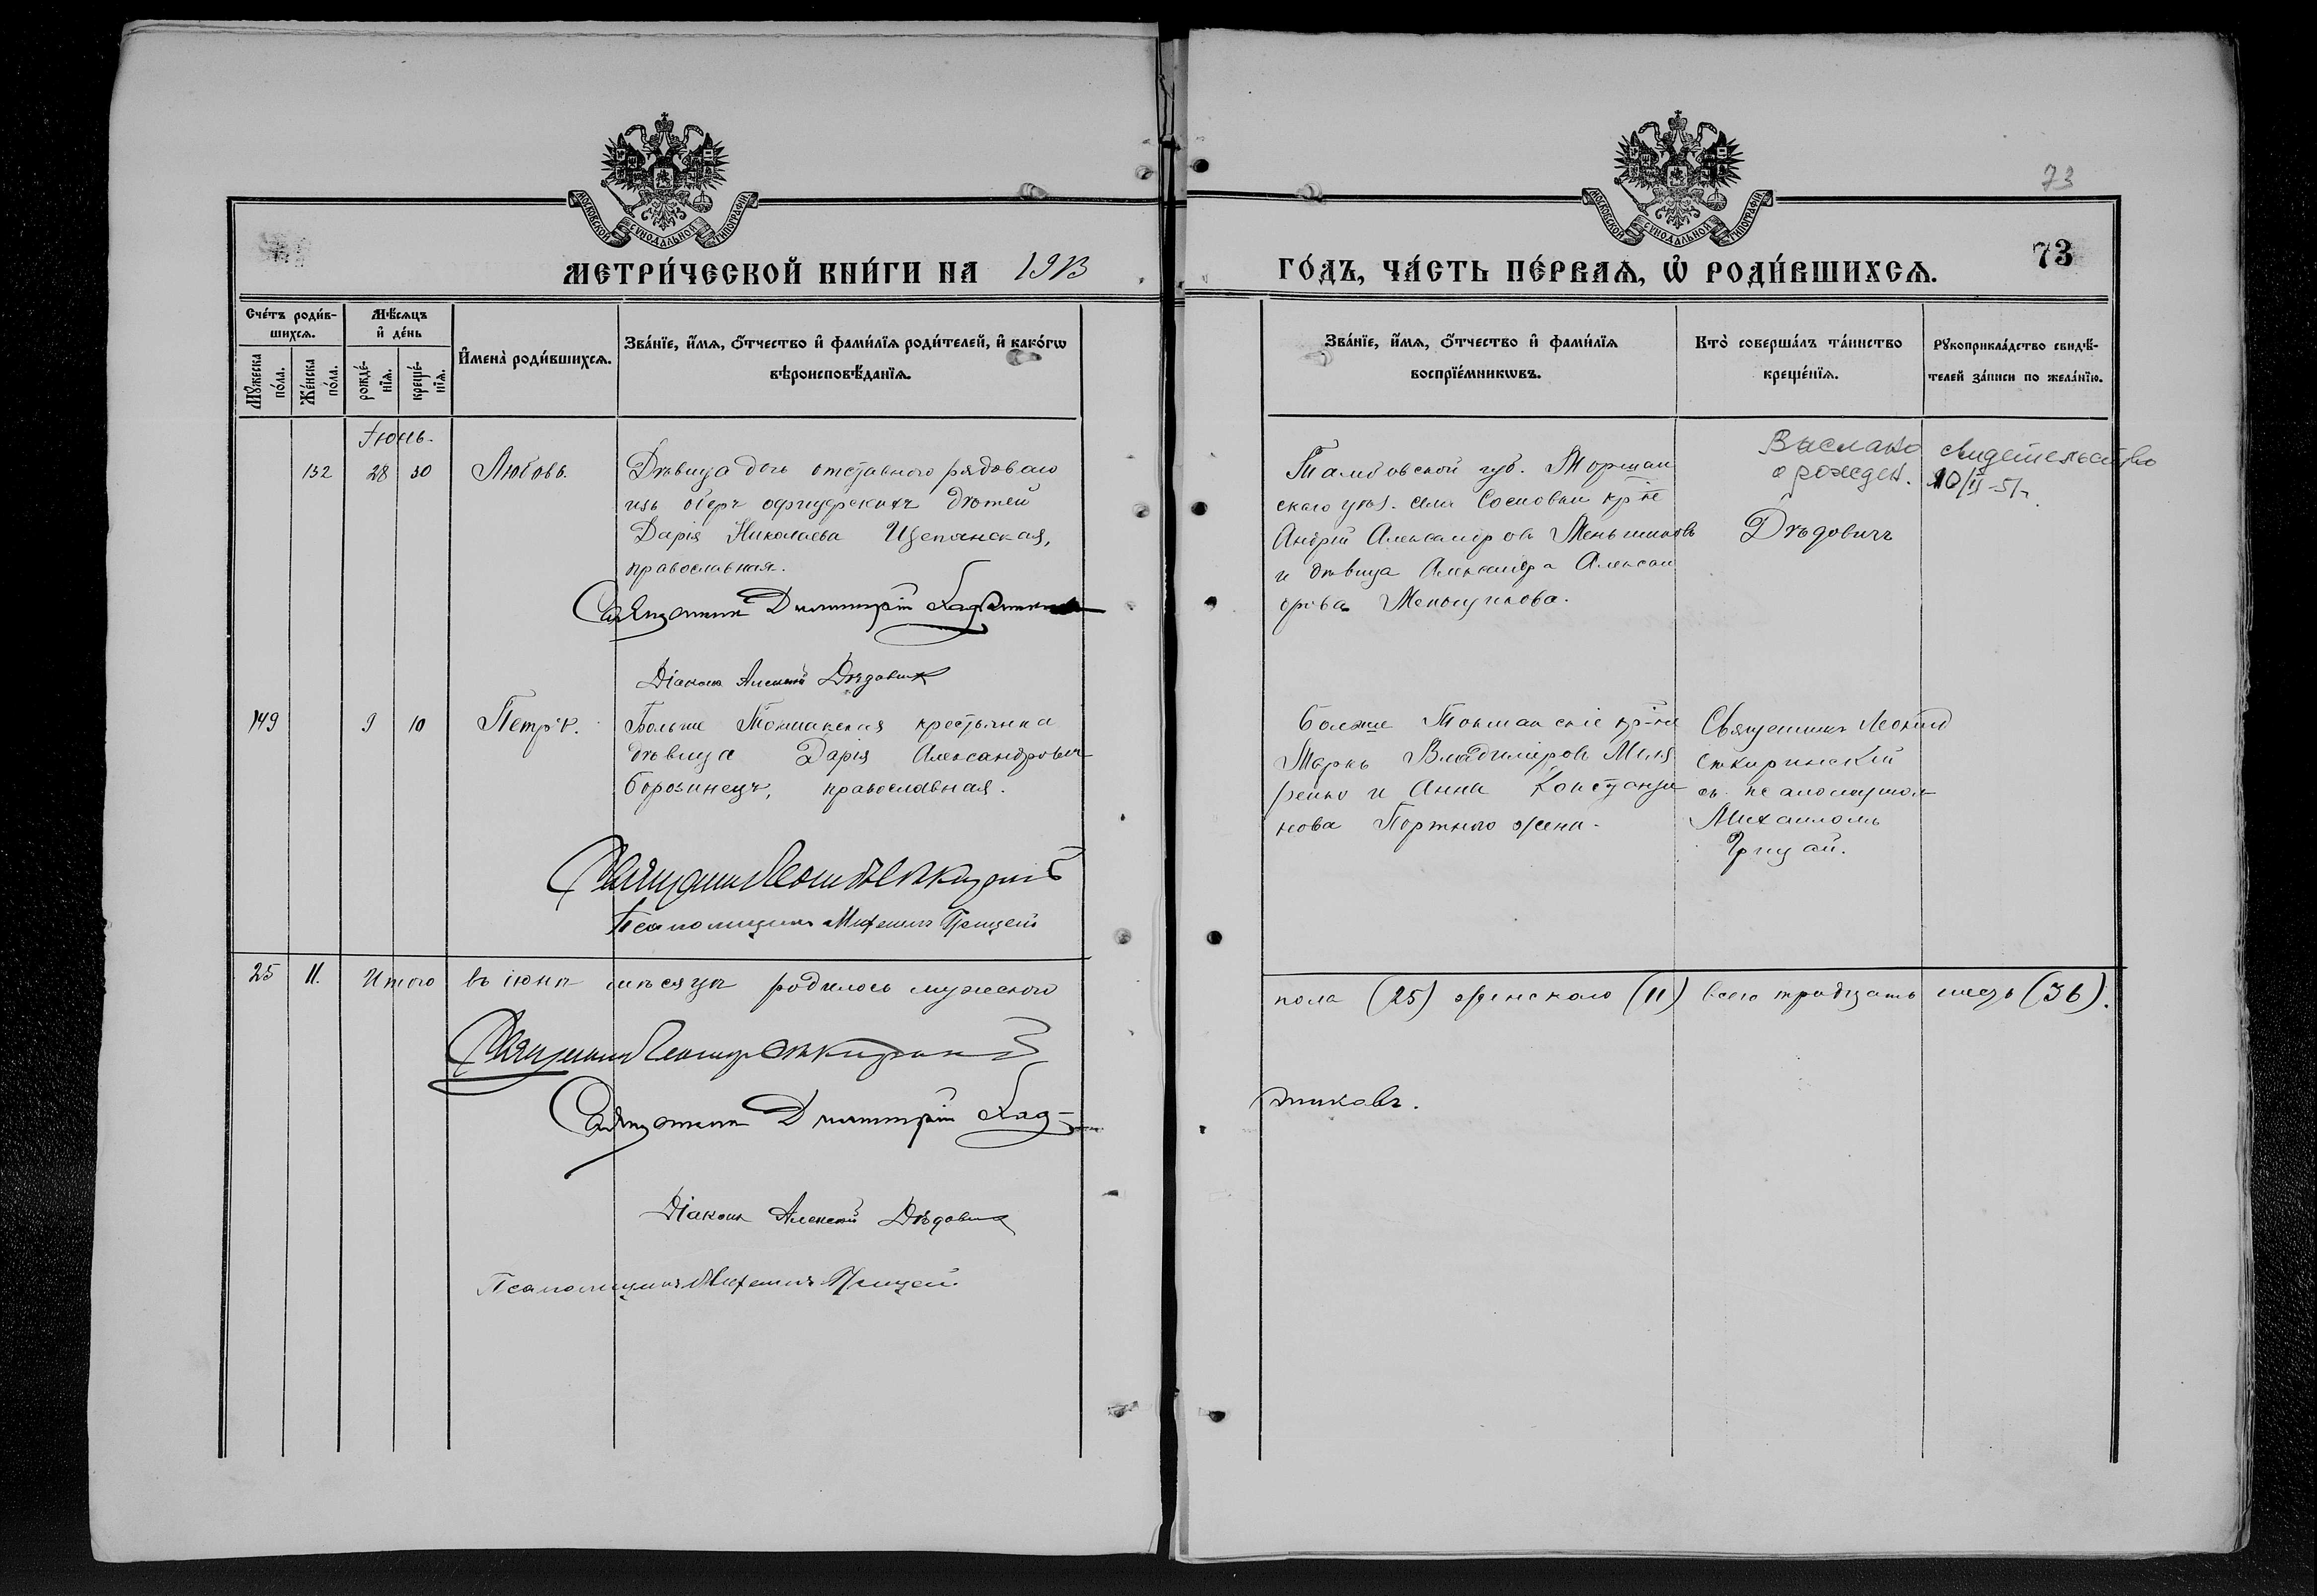 МОСКОВСКОЙ СѴНОДАЛЬНОЙ ТИПОГРАФІИ
МЕТРИ́ЧЕСКОЙ КНИ́ГИ НА 1913
Сче́тъ роди́в-
шихсѧ.
Мꙋжеска по́ла.
Же́нска по́ла.
Мѣ́сѧцъ
и҆ де́нь
рожде́-
нїѧ.
креще́-
нїѧ.
И҆мена̀ роди́вшихсѧ.
Зва́нїе, и҆́мѧ, ѻ҆́тчество и҆ фами́лїѧ роди́телей, и҆ како́гѡ
вѣроисповѣ́данїѧ.
Іюнь.
132 28 30 Любовь.
Дѣвица дочь отставного рядоваго
изъ оберъ офицерскихъ дѣтей
Дарія Николаева Щепанская,
православная.
Священникъ Димитрій
Діаконъ Алексій Дѣдовичъ
149 9 10 Петръ.
Больше Токмакская крестьянка
дѣвица Дарія Александровна
Борозинецъ, православная.
Священникъ Леонидъ
Псаломщикъ Михаилъ Грицай
25 11. Итого въ іюнѣ мѣсяцѣ родилось мужескаго
Священникъ
Священникъ Димитрій Кад-
Діаконъ Алексій Дѣдовичъ
Псаломщикъ Михаилъ Грицай.
73
МОСКОВСКОЙ СѴНОДАЛЬНОЙ ТИПОГРАФІИ
73
ГО́ДЪ, ЧА́СТЬ ПЕ́РВАѦ, Ѡ҆ РОДИ́ВШИХСѦ.
Зва́нїе, и҆́мѧ, ѻ҆́тчество и҆ фами́лїѧ
воспрїе́мникѡвъ.
Кто̀ соверша́лъ та́инство
креще́нїѧ.
Рꙋкоприкла́дство свидѣ́-
телей за́писи по жела́нїю.
Выслано свидетельство
о рожден. 10/II-51г.
Тамбовской губ. Моршан
скаго уѣз. села Сосновки кр-не
Андрей Александровъ Меньшиковъ
и дѣвица Александра Алексан
дрова Меньщикова.
Дѣдовичъ
Больше Токмакскіе кр-не
Маркъ Владиміровъ Миля
ренко и Анна Константи
нова Портного жена.
Священникъ Леонид
Съкиринскій
съ псаломщикомъ
Михаиломъ
Грицай.
пола (25) женскаго (11) всего тридцать шесть (36).
никовъ.